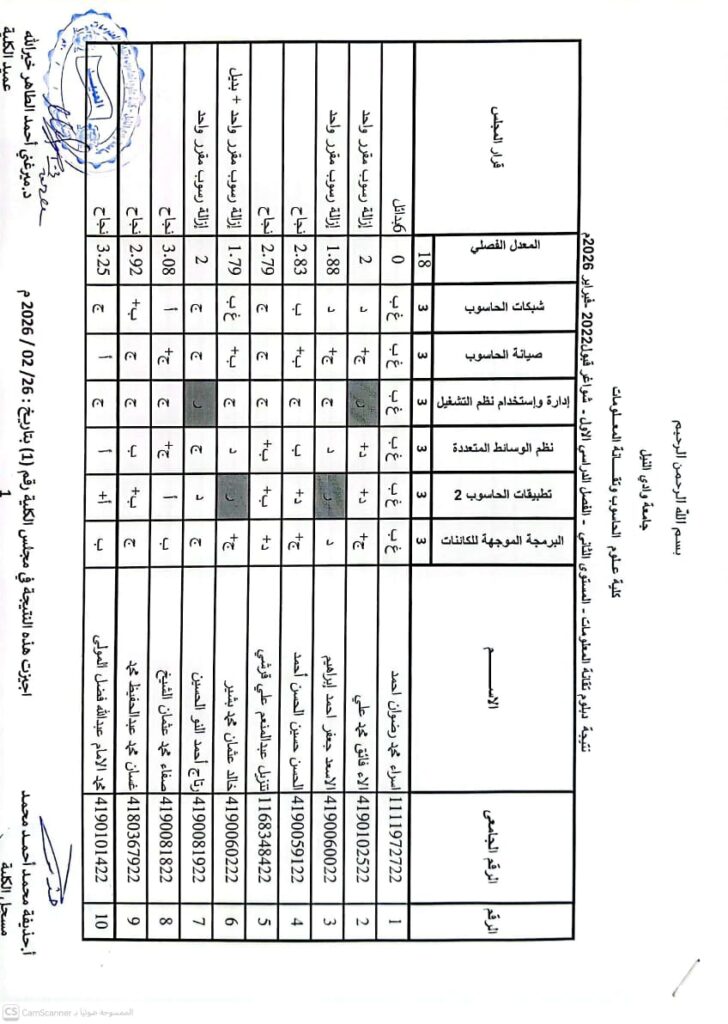 بسم الله الرحمن الرحيم
جامعة وادي النيل
كلية علوم الحاسوب وتقانة المعلومات
نتيجة دبلوم تقانة المعلومات - المستوى الثاني - الفصل الدراسي الاول - شواغر قبول2022 -فبراير 2026م
الرقم | الرقم الجامعي | الاســـم | البرمجة الموجهة للكائنات | تطبيقات الحاسوب 2 | نظم الوسائط المتعددة | إدارة وإستخدام نظم التشغيل | صيانة الحاسوب | شبكات الحاسوب | المعدل الفصلي | قرار المجلس
3 | 3 | 3 | 3 | 3 | 3 | 18
1 | 1111972722 | اسراء محمد رضوان احمد | غ ب | غ ب | غ ب | غ ب | غ ب | غ ب | 0 | 6بدائل
2 | 4190102522 | الاء فائق محمد علي | ج+ | د+ | د+ | ر | ج+ | د | 2 | إزالة رسوب مقرر واحد
3 | 4190060022 | الاسعد جعفر احمد إبراهيم | ج | ر | د | ج | ج+ | د | 1.88 | إزالة رسوب مقرر واحد
4 | 4190059122 | الحسن حسين الحسن أحمد | ج+ | د+ | ب | ج | ب+ | ب | 2.83 | نجاح
5 | 1168348422 | تنزيل عبدالمنعم علي قرشي | د+ | ب+ | ب+ | ج | ج | ج | 2.79 | نجاح
6 | 4190060222 | خالد عثمان محمد بشير | ج+ | ر | د | ج | ب+ | غ ب | 1.79 | إزالة رسوب مقرر واحد + بديل
7 | 4190081922 | رتاج أحمد النو الحسين | ج | د | ج | ر | ج | ج | 2 | إزالة رسوب مقرر واحد
8 | 4190081822 | صفاء محمد عثمان الشيخ | ب | أ | ج+ | ج | ج+ | أ | 3.08 | نجاح
9 | 4180367922 | غسان محمد عبدالحفيظ محمد | ج | ب+ | ب | ج | ج | ب+ | 2.92 | نجاح
10 | 4190101422 | محمد الامام عبدالله فضل المولى | ب | أ+ | أ | ج | أ | ج | 3.25 | نجاح
اجيزت هذه النتيجة في مجلس الكلية رقم (1) بتاريخ : 26/ 02 / 2026 م
أ.حذيفة محمد أحمد محمد
مسجل الكلية
د.ميرغني أحمد الطاهر خيرالله
عميد الكلية
العميد
1
CS CamScanner الممسوحة ضوئيا بـ